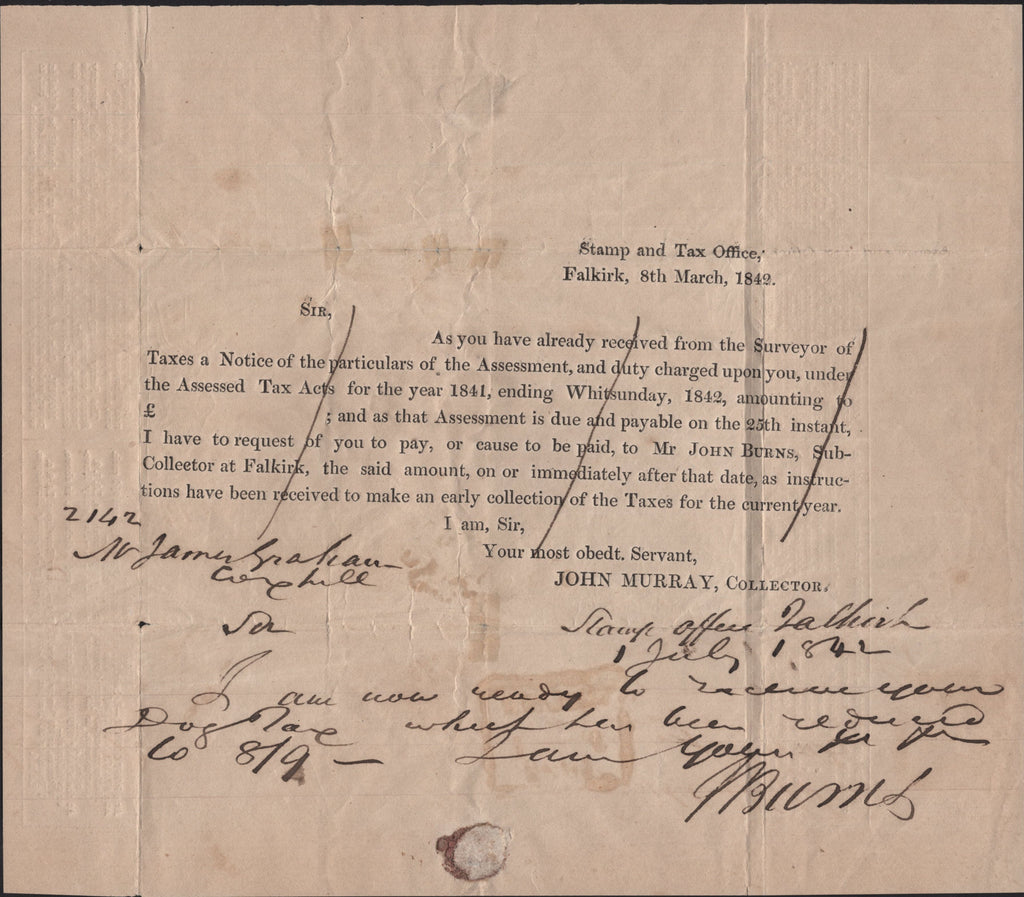 Stamp and Tax Office,
Falkirk, 8th March, 1842.
SIR,
As you have already received from the Surveyor of
Taxes a Notice of the particulars of the Assessment, and duty charged upon you, under
the Assessed Tax Acts for the year 1841, ending Whitsunday, 1842, amounting to
£ ; and as that Assessment is due and payable on the 25th instant,
I have to request of you to pay, or cause to be paid, to Mr JOHN BURNS, Sub-
Collector at Falkirk, the said amount, on or immediately after that date, as instruc-
tions have been received to make an early collection of the Taxes for the current year.
I am, Sir,
Your most obedt. Servant,
JOHN MURRAY, COLLECTOR.
2142
Mr James Graham
Sir
Stamp office Falkirk
1 July 1842
I am now ready to receive your
Dog Tax which has been reduced
to 8/9 – I am yours
J Burns